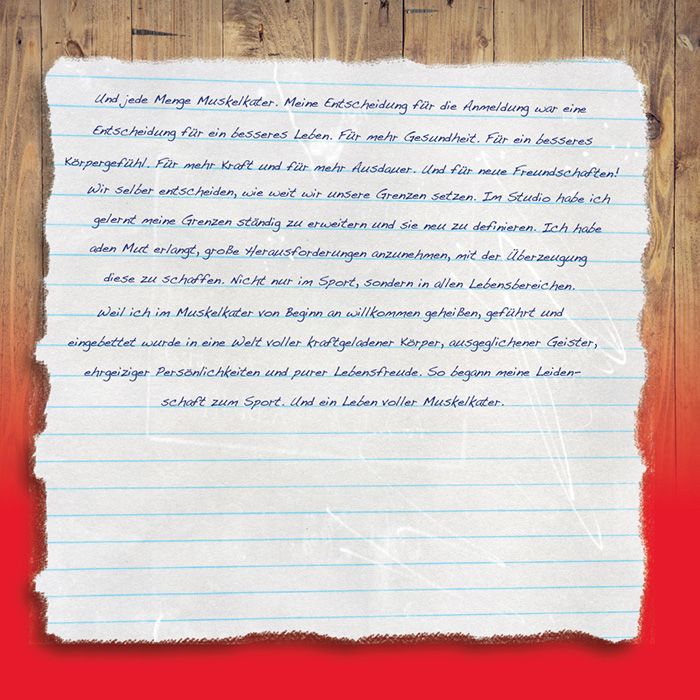 Und jede Menge Muskelkater. Meine Entscheidung für die Anmeldung war eine
Entscheidung für ein besseres Leben. Für mehr Gesundheit. Für ein besseres
Körpergefühl. Für mehr Kraft und für mehr Ausdauer. Und für neue Freundschaften!
Wir selber entscheiden, wie weit wir unsere Grenzen setzen. Im Studio habe ich
gelernt meine Grenzen ständig zu erweitern und sie neu zu definieren. Ich habe
aden Mut erlangt, große Herausforderungen anzunehmen, mit der Überzeugung
diese zu schaffen. Nicht nur im Sport, sondern in allen Lebensbereichen.
Weil ich im Muskelkater von Beginn an willkommen geheißen, geführt und
eingebettet wurde in eine Welt voller kraftgeladener Körper, ausgeglichener Geister,
ehrgeiziger Persönlichkeiten und purer Lebensfreude. So begann meine Leiden-
schaft zum Sport. Und ein Leben voller Muskelkater.